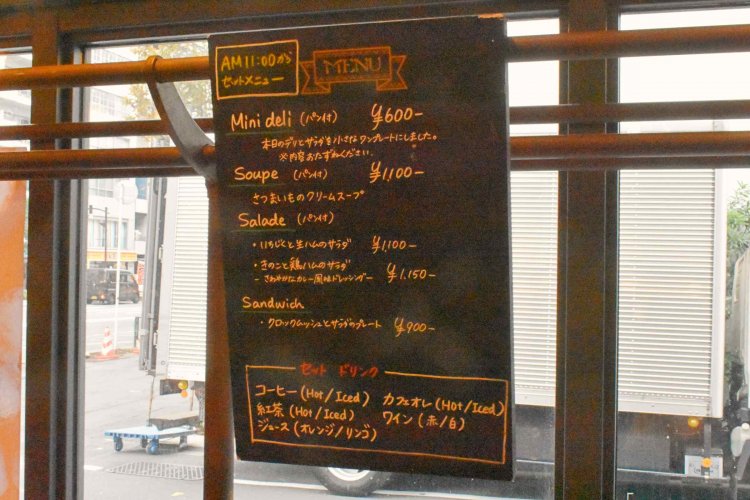 AM11:00から
セットメニュー
MENU
Mini deli (パン付) ¥600-
本日のデリとサラダを小さなワンプレートにしました。
※内容おたずねください。
Soupe (パン付) ¥1,100-
さつまいものクリームスープ
Salade (パン付)
・いちじくと生ハムのサラダ ¥1,100-
・きのこと鶏ハムのサラダ
- さわやかなカレー風味ドレッシング- ¥1,150-
Sandwich
・クロックムッシュとサラダのプレート ¥900-
セット ドリンク
コーヒー (Hot/Iced) カフェオレ (Hot/Iced)
紅茶 (Hot/Iced) ワイン (赤/白)
ジュース (オレンジ/リンゴ)